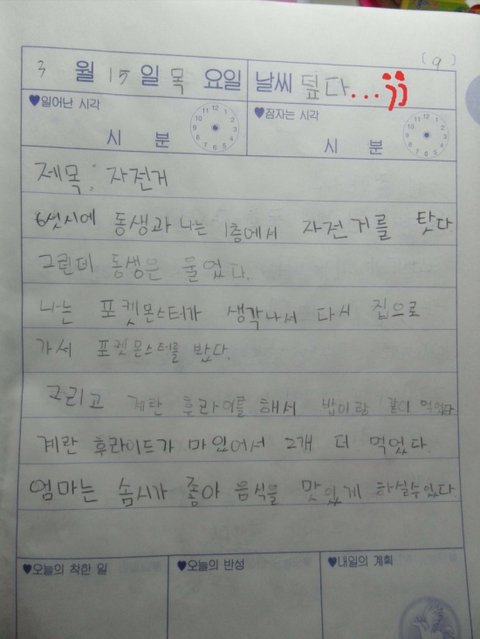 (9)
3 월 15 일 목 요일 날씨 덮다...
♥일어난 시각 ♥잠자는 시각
시 분 시 분
제목: 자전거
6섯시에 동생과 나는 1층에서 자전거를 탓다
그런데 동생은 울었다.
나는 포켓몬스터가 생각나서 다시 집으로
가서 포켓몬스터를 밨다.
그리고 계란 후라이를 해서 밥이랑 같이 먹었다
계란 후라이드가 마있어서 2개 더 먹었다.
엄마는 솜시가 좋아 음식을 맛있게 하실수있다.
♥오늘의 착한 일 ♥오늘의 반성 ♥내일의 계획